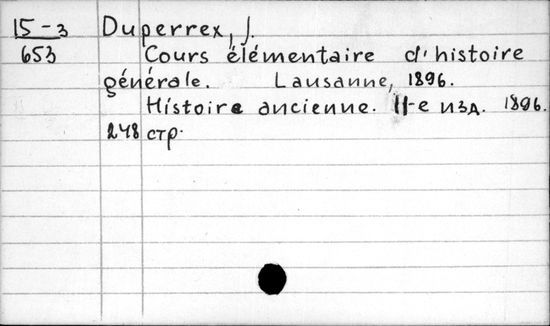 15-3 Duperrex, J.
653 Cours élémentaire d'histoire
générale. Lausanne, 1896.
Histoire ancienne. 11-е изд. 1896.
248 стр.